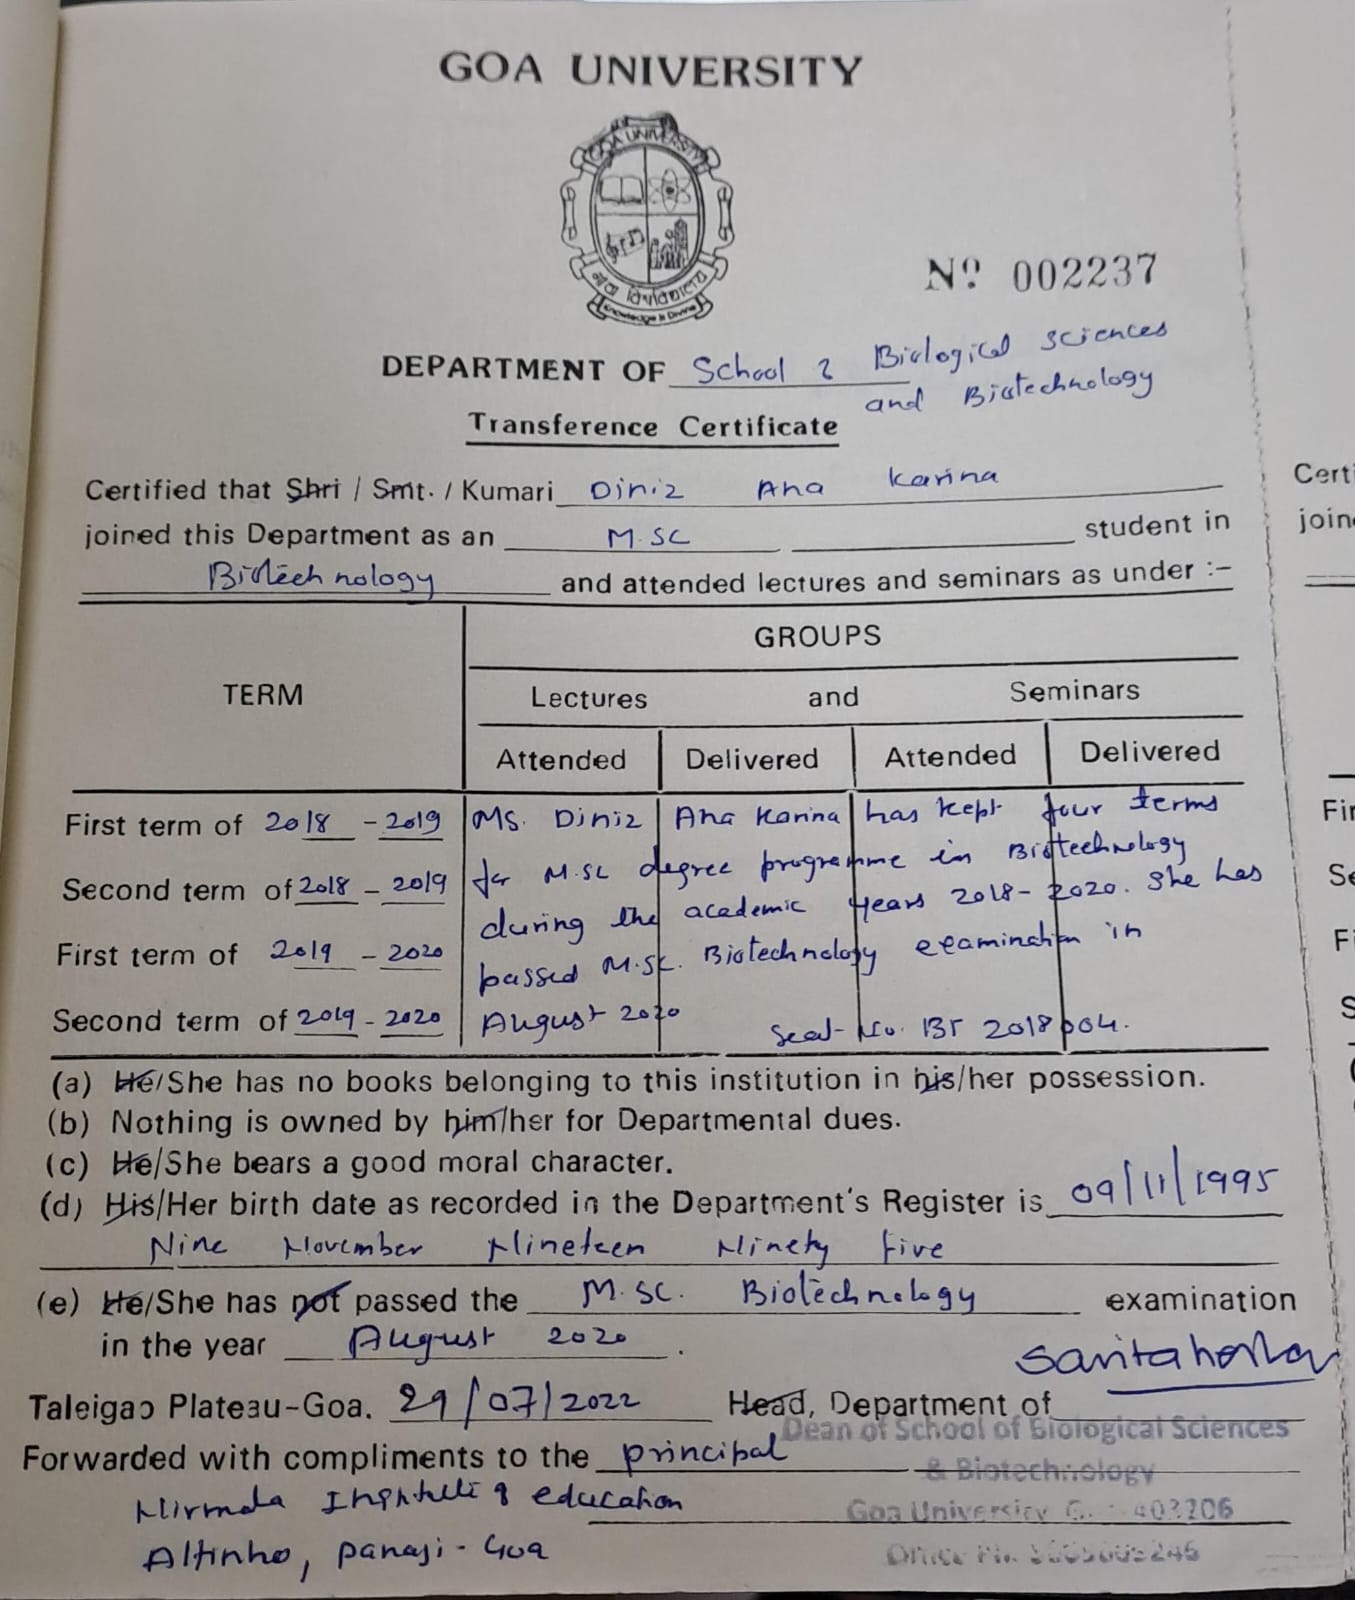 GOA UNIVERSITY
GOA UNIVERSITY
Knowledge is Divine
Nº 002237
DEPARTMENT OF School of Biological sciences
and Biotechnology
Transference Certificate
Certified that Shri / Smt. / Kumari Diniz Ana Karina
joined this Department as an M.SC student in
Biotechnology and attended lectures and seminars as under :-
GROUPS
TERM Lectures and Seminars
Attended Delivered Attended Delivered
First term of 2018 - 2019 Ms. Diniz Ana Karina has kept four terms
Second term of 2018 - 2019 for M.Sc degree programme in Biotechnology
during the academic years 2018-2020. She has
First term of 2019 - 2020 passed M.Sc. Biotechnology examination in
Second term of 2019 - 2020 August 2020 Seat No. BT 2018004.
(a) He/She has no books belonging to this institution in his/her possession.
(b) Nothing is owned by him/her for Departmental dues.
(c) He/She bears a good moral character.
(d) His/Her birth date as recorded in the Department's Register is 09/11/1995
Nine November Nineteen Ninety five
(e) He/She has not passed the M.SC. Biotechnology examination
in the year August 2020.
Taleigao Plateau-Goa. 29/07/2022 Head, Department of
Dean of School of Biological Sciences
Forwarded with compliments to the principal
& Biotechnology
Nirmala Institute of education
Goa University 403206
Altinho, panaji - Goa
Office Ph.
Cert
join
Fir
Se
F
S